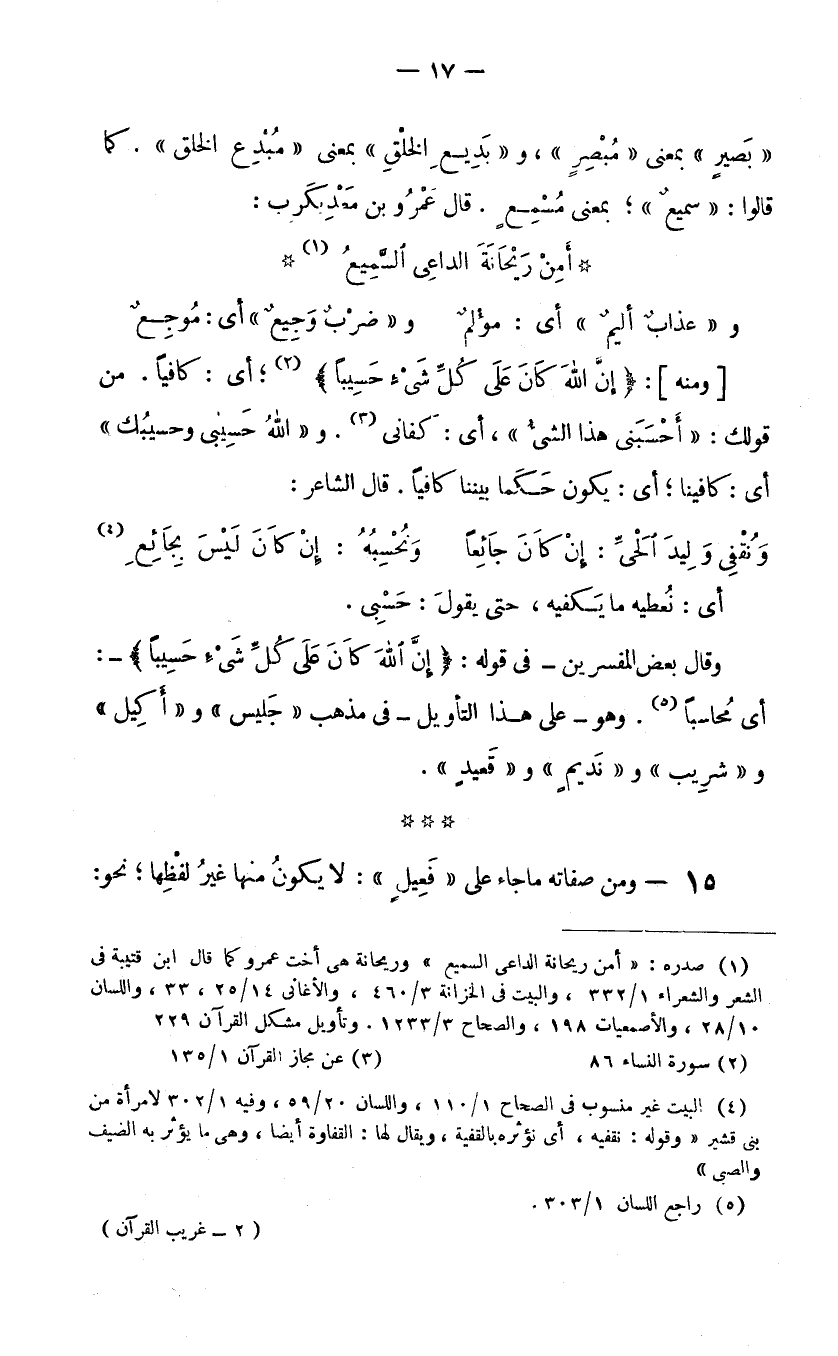 — ١٧ —
« بَصيرٍ » بمعنى « مُبْصِرٍ » ، و « بَدِيعِ الخلْقِ » بمعنى « مُبْدِع الخلق » . كما
قالوا : « سميعٌ » ؛ بمعنى مُسْمِعٍ . قال عَمْرُو بن مَعْدِيكَرِب :
* أَمِنْ رَيْحَانَةَ الداعِى ٱلسَّمِيعُ (١) *
و « عذابٌ أليمٌ » أى : مؤلمٌ و « ضرْبٌ وَجِيعٌ » أى : مُوجِعٌ
[ ومنه ] : ﴿ إِنَّ اللهَ كَانَ عَلَى كُلِّ شَىْءٍ حَسِيباً ﴾ (٢) ؛ أى : كافياً . من
قولك : « أَحْسَبَنى هذا الشىءُ » ، أى : كفانى (٣) . و « اللهُ حَسِيبى وحسيبُك »
أى : كافينا ؛ أى : يكون حَكَما بيننا كافياً . قال الشاعر :
وَنُقْفِى وَلِيدَ ٱلْحَىِّ : إِنْ كَانَ جَائِعاً وَنُحْسِبُهُ : إِنْ كَانَ لَيْسَ بِجَائِعِ (٤)
أى : نُعطيه ما يَكفيه ، حتى يقولَ : حَسْبِى .
وقال بعض المفسرين – فى قوله : ﴿ إِنَّ ٱللهَ كاَنَ عَلَى كُلِّ شَىْءٍ حَسِيباً ﴾ – :
أى مُحاسباً (٥) . وهو – على هذا التأويل – فى مذهب « جَليس » و « أَكِيل »
و « شرِيب » و « نَديمٍ » و « قَعيدٍ » .
* * *
١٥ — ومن صفاته ماجاء على « فَعِيلٍ » : لا يكونُ منها غيرُ لفْظِها ؛ نحو:
(١) صدره : « أمن ريحانة الداعى السميع » وريحانة هى أخت عمرو كما قال ابن قتيبة فى
الشعر والشعراء ٣٣٢/١ ، والبيت فى الخزانة ٤٦٠/٣ ، والأغانى ٢٥/١٤ ، ٣٣ ، واللسان
٢٨/١٠ ، والأصمعيات ١٩٨ ، والصحاح ١٢٣٣/٣ . وتأويل مشكل القرآن ٢٢٩
(٢) سورة النساء ٨٦ (٣) عن مجاز القرآن ١٣٥/١
(٤) البيت غير منسوب فى الصحاح ١١٠/١ ، واللسان ٥٩/٢٠ ، وفيه ٣٠٢/١ لامرأة من
بنى قشير « وقوله : نقفيه ، أى نؤثره بالقفية ، ويقال لها : القفاوة أيضا ، وهى ما يؤثر به الضيف
والصبى »
(٥) راجع اللسان ٣٠٣/١ .
( ٢ – غريب القرآن )